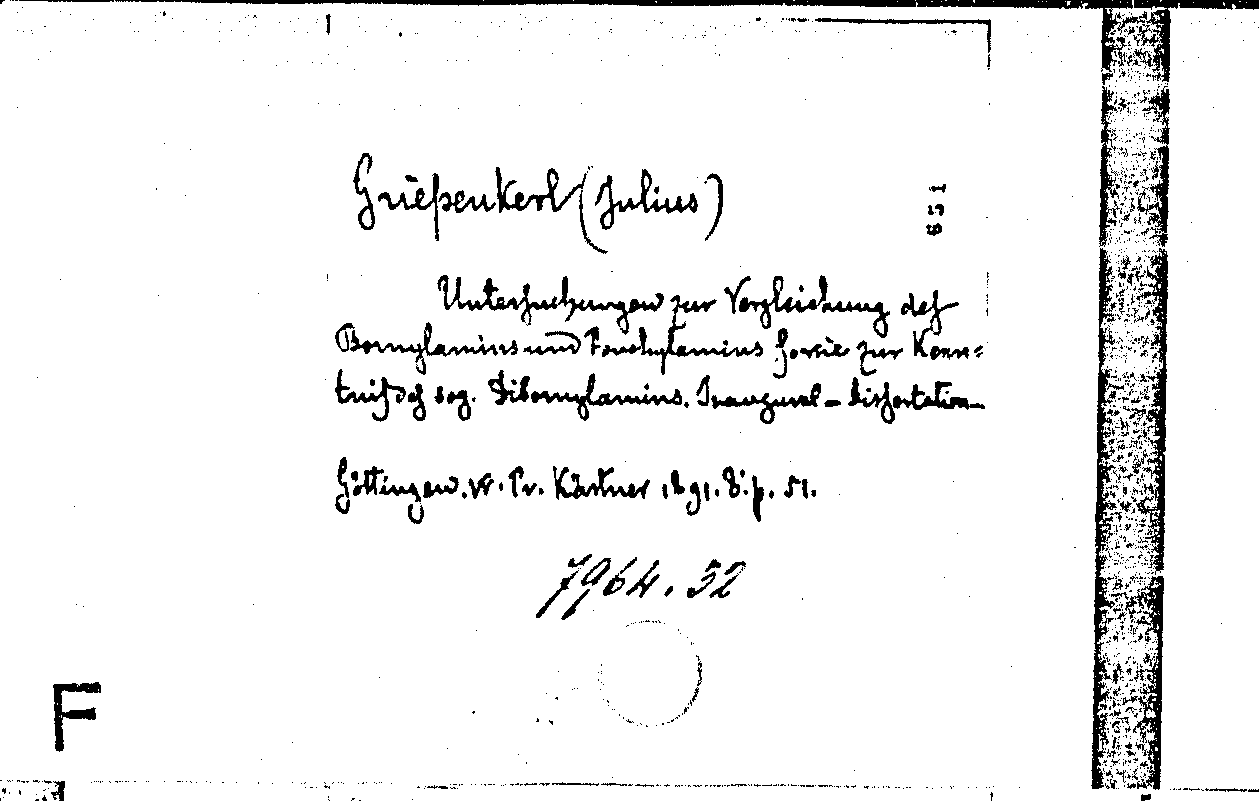 Griepenkerl (Julius)
651
Untersuchungen zur Vergleichung des
Bornylamins und Fenchylamins sowie zur Kenn=
tniß des sog. Dibornylamins. Inaugural-Dissertation
Göttingen. W. Fr. Kästner 1891. 8°. p. 51.
7964.32
F